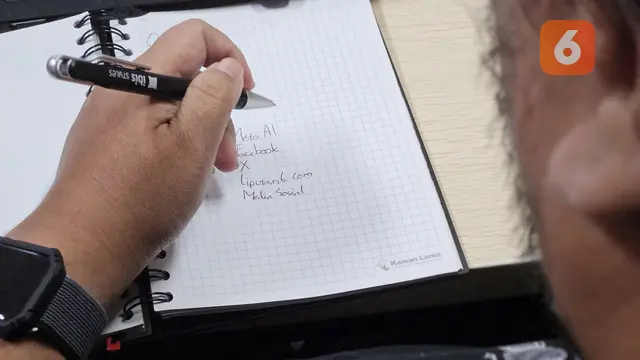 6
ibis STYLES
Meta AI
Facebook
X
Liputan6.com
Media Sosial
Kawan Lama